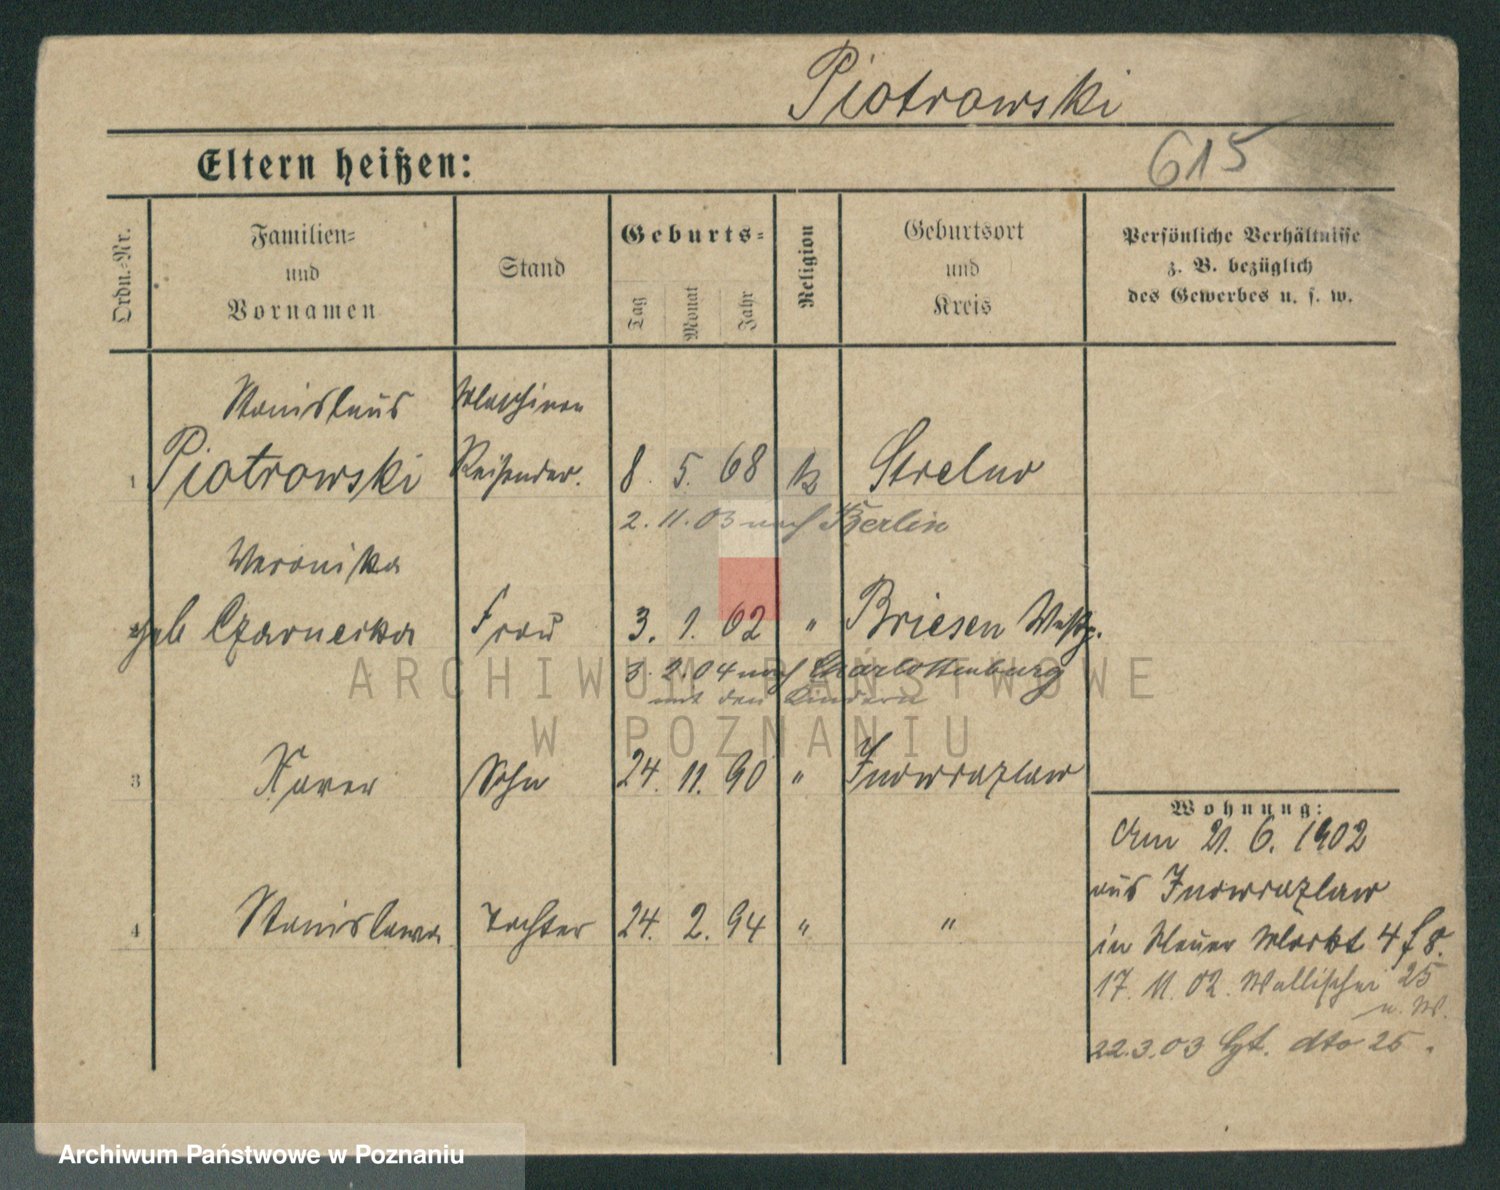 Piotrowski
615
Eltern heißen:
Ordn.-Nr.
Familien-
und
Vornamen
Stand
Geburts-
Tag
Monat
Jahr
Religion
Geburtsort
und
Kreis
Persönliche Verhältnisse
z. B. bezüglich
des Gewerbes u. s. w.
Stanislaus Maschinen
1 Piotrowski Reisender. 8. 5. 68 k Strelno
2. 11. 03 nach Berlin
Veronika
geb Czarnecka Frau 3. 1. 62 " Briesen Westp.
3. 2. 04 nach Charlottenburg
mit den Kindern
3 Xaver Sohn 24. 11. 90 " Inowrazlaw
4 Stanislawa Tochter 24. 2. 94 " "
Wohnung:
Am 21. 6. 1902
aus Inowrazlaw
in Neuer Markt 4
17. 11. 02. Wallischei 25
22.3.03 dto 25.
ARCHIWUM PAŃSTWOWE
W POZNANIU
Archiwum Państwowe w Poznaniu